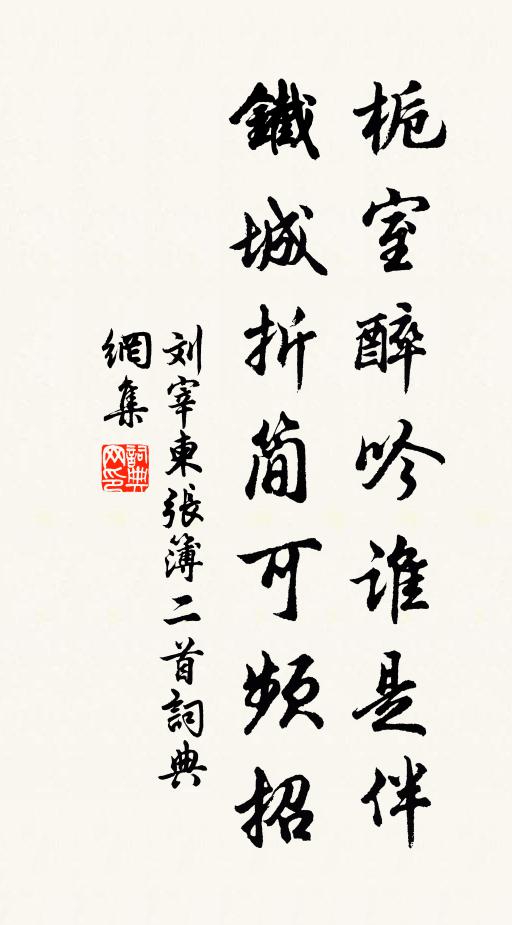 栀室醉吟谁是伴
鐵城折简可频招
刘宰東張簿二首詞典
網集
詞典
网印